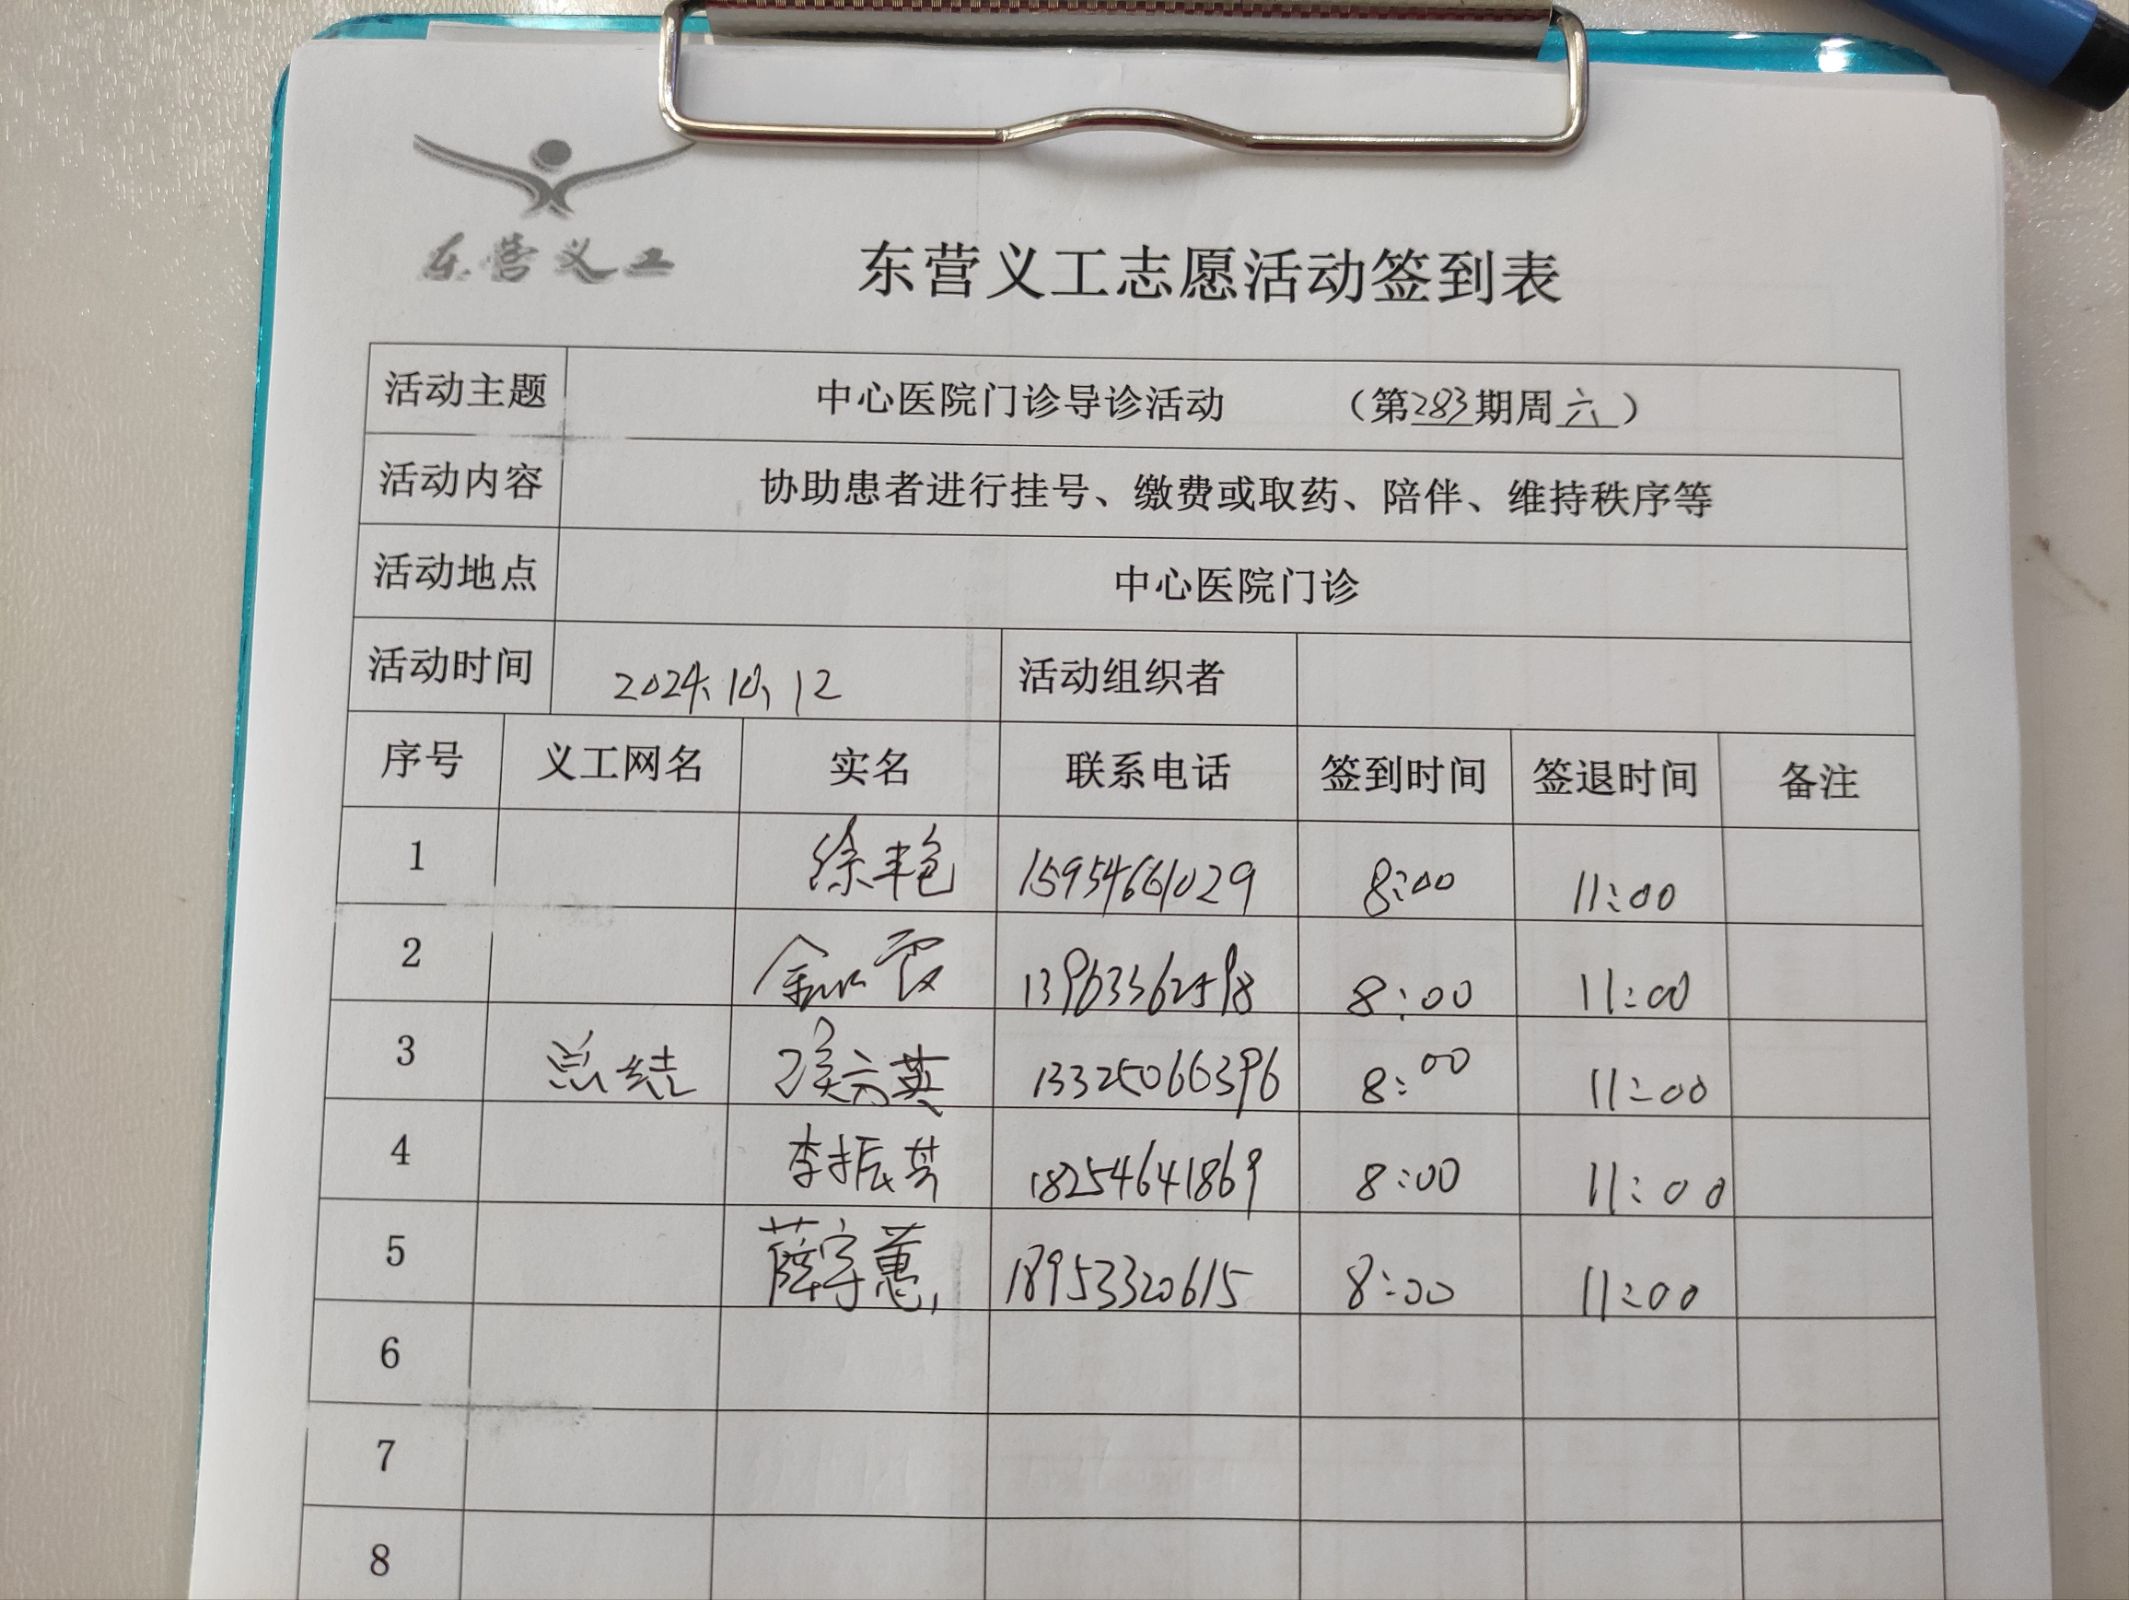 东营义工
东营义工志愿活动签到表
活动主题 中心医院门诊导诊活动 （第283期周六）
活动内容 协助患者进行挂号、缴费或取药、陪伴、维持秩序等
活动地点 中心医院门诊
活动时间 2024.10.12 活动组织者
序号 义工网名 实名 联系电话 签到时间 签退时间 备注
1 徐丰艳 15954661029 8:00 11:00
2 13963362598 8:00 11:00
3 总结 13325066396 8:00 11:00
4 李振芳 18254641869 8:00 11:00
5 薛宇蕙 18953320615 8:00 11:00
6
7
8